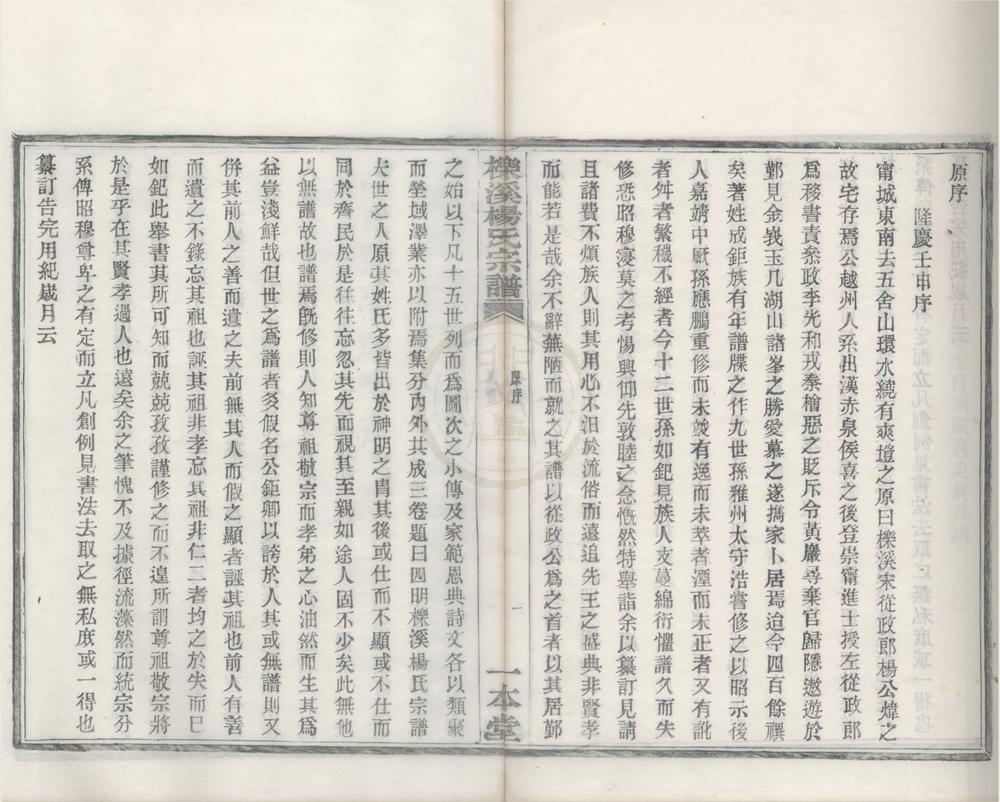 原序
隆慶壬申序
甯城東南去五舍山環水繞有爽塏之原曰櫟溪宋從政郎楊公煒之
故宅存焉公越州人系出漢赤泉侯喜之後登崇甯進士授左從政郎
爲移書責叅政李光和戎秦檜惡之貶斥令黃巖尋棄官歸隱遨遊於
鄞見金峩玉几湖山諸峯之勝愛慕之遂擕家卜居焉迨今四百餘禩
矣著姓成鉅族有年譜牒之作九世孫雅州太守浩嘗修之以昭示後
人嘉靖中厥孫應鵬重修而未竣有逸而未萃者湮而未正者又有訛
者舛者繁穢不經者今十二世孫如鈀見族人支蔓綿衍懼譜久而失
修恐昭穆寖莫之考惕興仰先敦睦之念慨然特舉詣余以纂訂見請
且諸費不煩族人則其用心不汨於流俗而遠追先王之盛典非賢孝
而能若是哉余不辭蕪陋而就之其譜以從政公爲之首者以其居鄞
櫟溪楊氏宗譜
原序
一
一本堂
之始以下凡十五世列而爲圖次之小傳及家範恩典詩文各以類聚
而塋域澤業亦以附焉集分內外共成三卷題曰四明櫟溪楊氏宗譜
夫世之人原其姓氏多皆出於神明之胄其後或仕而不顯或不仕而
同於齊民於是往往忘忽其先而視其至親如途人固不少矣此無他
以無譜故也譜焉旣修則人知尊祖敬宗而孝弟之心油然而生其爲
益豈淺鮮哉但世之爲譜者多假名公鉅卿以誇於人其或無譜則又
倂其前人之善而遺之夫前無其人而假之顯者誣其祖也前人有善
而遺之不錄忘其祖也誣其祖非孝忘其祖非仁二者均之於失而已
如鈀此舉書其所可知而兢兢孜孜謹修之而不遑所謂尊祖敬宗將
於是乎在其賢孝過人也遠矣余之筆愧不及據徑流藻然而統宗分
系俾昭穆尊卑之有定而立凡創例見書法去取之無私庶或一得也
纂訂告完用紀嵗月云